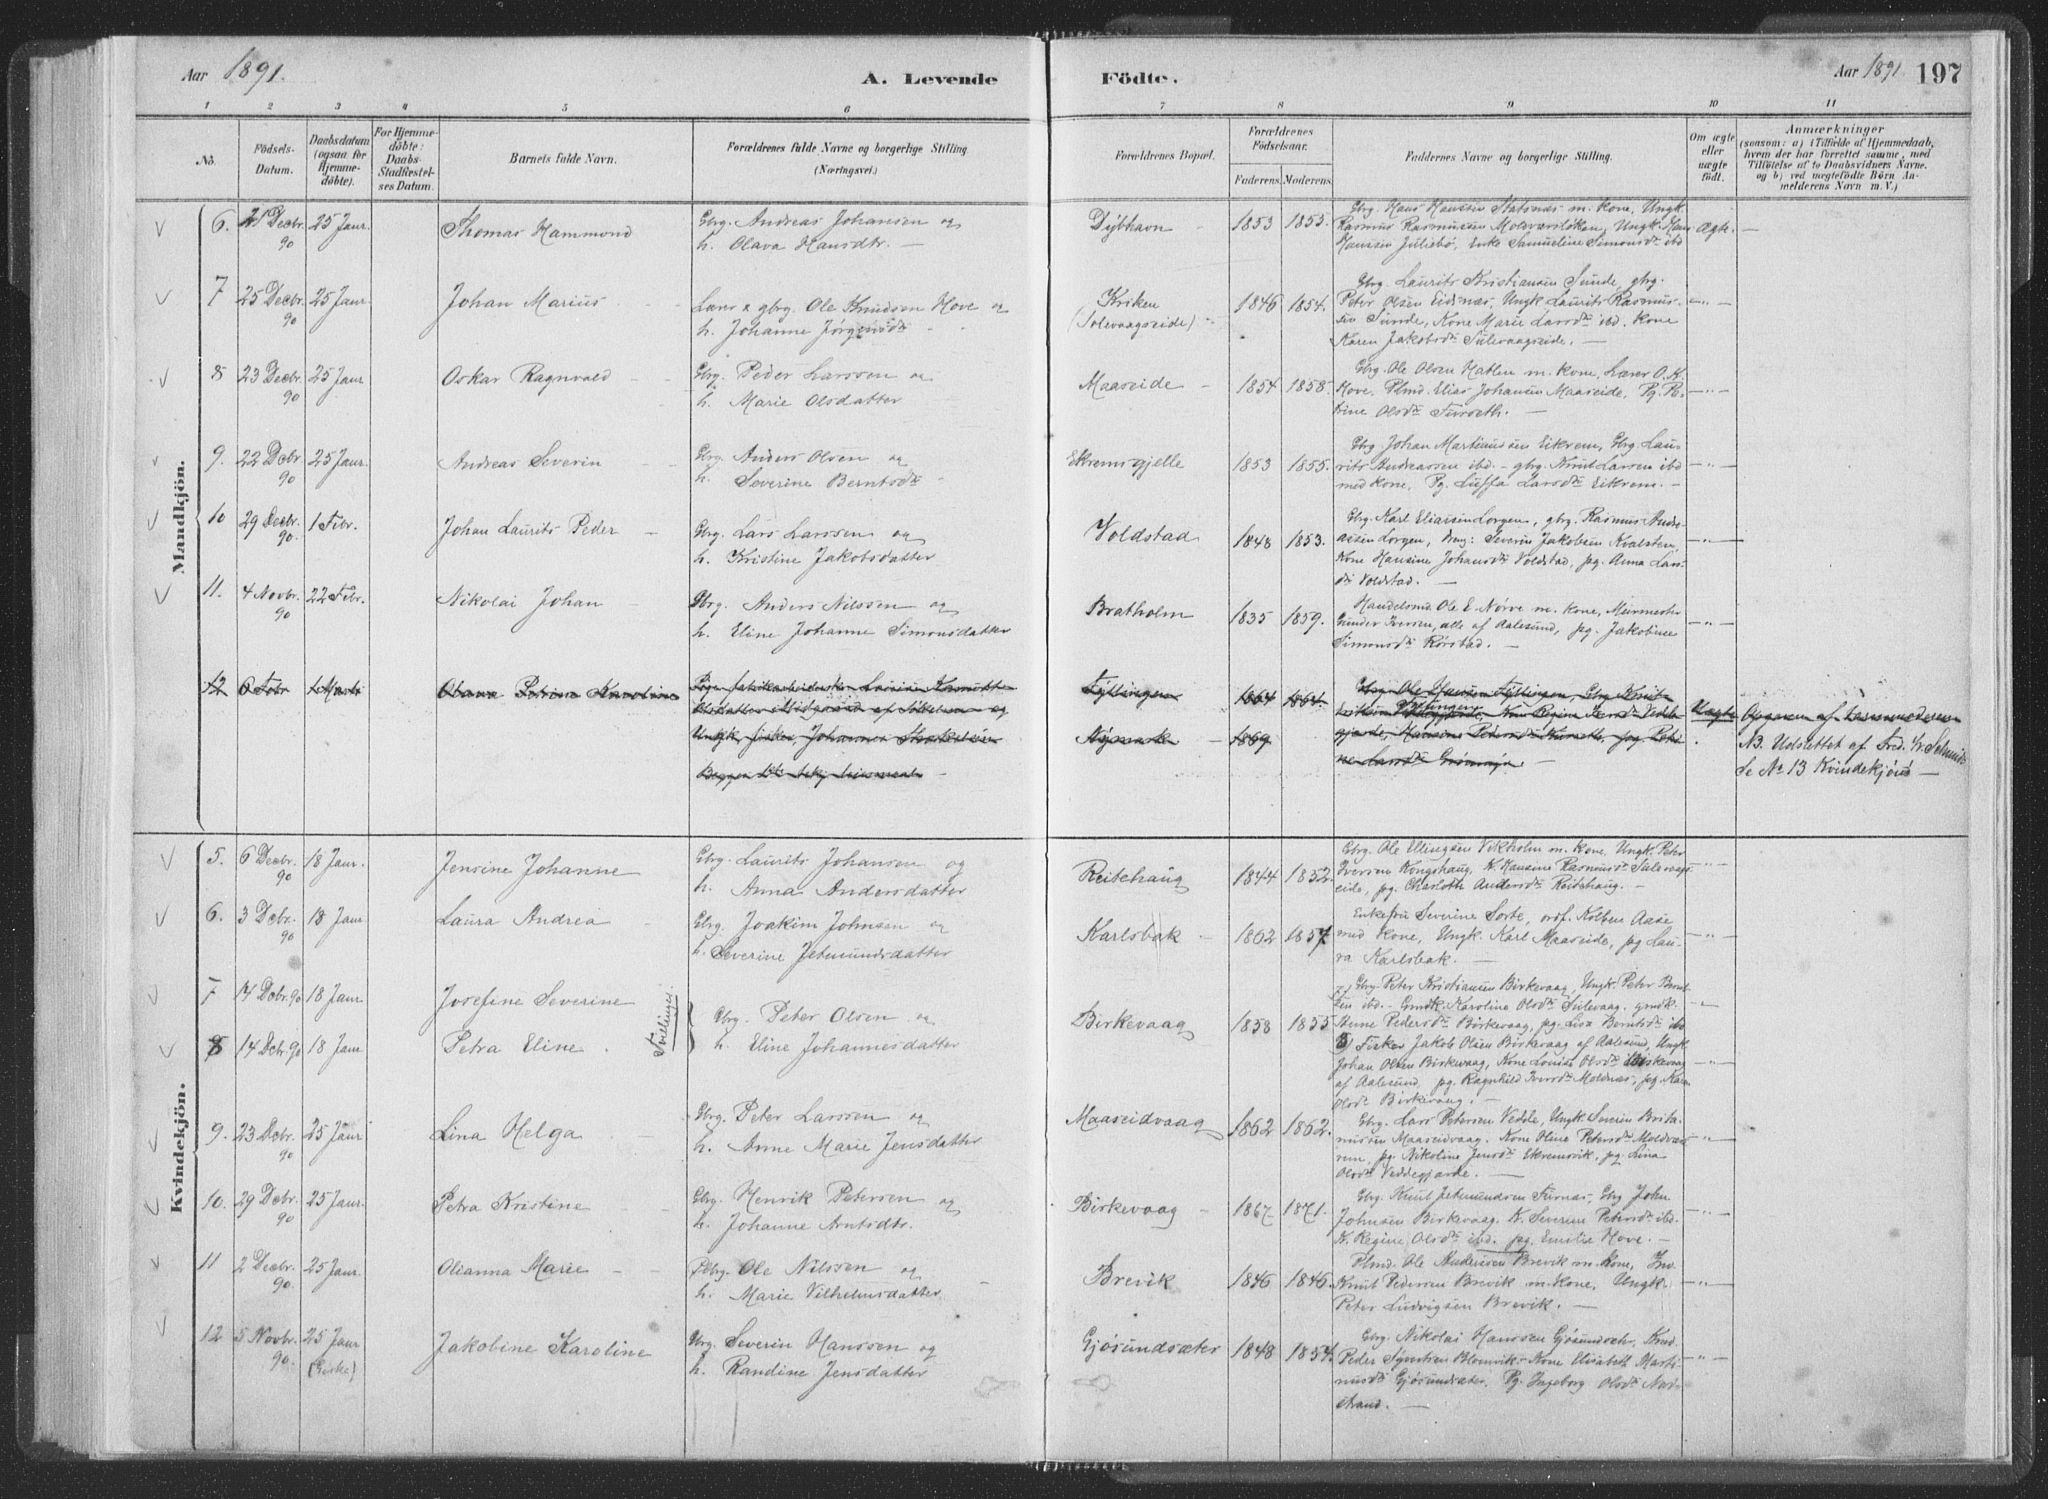 Aar 1891.
A. Levende
Födte.
Aar 1891
197
1 2 3 4 5 6 7 8 9 10 11
No.
Födsels-
Datum.
Daabsdatum
(ogsaa for
Hjemme-
döbte).
For Hjemme-
döbte:
Daabs-
Stadfæstel-
ses Datum.
Barnets fulde Navn.
Forældrenes fulde Navne og borgerlige Stilling
(Næringsvei.)
Forældrenes Bopæl.
Forældrenes
Födselsaar.
Faderens. Moderens.
Faddernes Navne og borgerlige Stilling.
Om ægte
eller
uægte
födt.
Anmærkninger
(saasom: a) i Tilfælde af Hjemmedaab,
hvem der har forrettet samme, med
Tilföielse af to Daabsvidners Navne.
og b) ved uægtefödte Börn An-
melderens Navn m. V.)
Mandkjön.
6. 21 Decbr. 90 25 Jaur. Thomas Hammond
Gbrg. Andreas Johansen og
h. Olava Hansdtr. —
Dybhavn 1853 1855.
Gbrg. Hans Hansen Statsnæs m. Kone, Ungk.
Rasmus Rasmussen Molværsløken, Ungk. Hans
Hanssen Juliebø, Enke Samueline Simonsdr ibd
Ægte. —
7 25 Decbr. 90 25 Jaur. Johan Marius
Lærer & gbrg. Ole Knudsen Hove og
h. Johanne Jørgensdr
Kriken
(Solevaagseide) 1846 1854.
Gbrg. Laurits Kristiansen Sunde, gbrg.
Peter Olsen Eidsnæs, Ungk. Laurits Rasmus-
sen Sunde, Kone Marie Larsdr ibd. Kone
Karen Jakobsdr Sulevaagseide. —
—"—
8 23 Decbr. 90 25 Jaur Oskar Ragnvald
Gbrg. Peder Larssen og
h. Marie Olsdatter
Maaseide 1854 1858.
Gbrg. Ole Olsen Hatlen m. Kone, Lærer O.K.
Hove, Plmd. Elias Johansen Maaseide, Pg. Pe-
trine Olsdr Furseth. —
—"—
9. 22 Dcbr 90 25 Jaur. Andreas Severin
Gbrg. Anders Olsen og
h. Severine Berntsdr
Ekremsgjelle 1853 1855.
Gbrg. Johan Martinussen Eikrem, Gbrg. Lau-
rits Andreassen ibd. — gbrg. Knut Larsen ibd
med Kone, Pg. Larsdr Eikrem. —
—"—
10 29 Decbr. 90. 1 Febr. Johan Laurits Peder
Gbrg. Lars Larssen og
h. Kristine Jakobsdatter
Voldstad 1848 1853.
Gbrg. Karl Eliassen Lorgen, gbrg. Rasmus Andre-
assen Lorgen, Severin Jakobsen Kvalsten
Kone Hansine Johansdr Voldstad, pg. Anna Lars-
dr Voldstad. —
—"—
11. 4 Novbr. 90 22 Febr. Nikolai Johan
Gbrg. Anders Nilssen og
h. Eline Johanne Simonsdatter
Bratholm 1835 1859.
Handelsmd Ole E. Nørve m. Kone, Murmester
Gunder Iversen, alle af Aalesund, pg. Jakobine
Simonsdr Rørstad. —
—"—
12 6 Febr 1 Marts Olava Petrine Karoline
Fyllingen 1864 1864.
1869
Uægte
N3. Udslettet af
Se No 13 Kvindekjøns —
Kvindekjön.
5. 6 Decbr. 90 18 Jaur. Jensine Johanne
Gbrg. Laurits Johansen og
h. Anna Andersdatter
Reitehaug 1844 1852.
Gbrg. Ole Ellingsen Vikholm m. Kone, Ungk. Peter
Iversen Kongshaug, K. Hansine Rasmusdr Sulevaags-
eide, pg. Charlotte Andersdr Reitehaug. —
—"—
6. 3 Dcbr. 90 18 Jaur Laura Andrea
Gbrg. Joakim Johnsen og
h. Severine Jetmundsdatter
Karlsbak 1862 1857
Enkefru Severine Sorte, ordf. Kolben Aase
med Kone, Ungk. Karl Maaseide, pg Lau-
ra Karlsbak. —
—"—
7 14 Dcbr. 90 18 Jaur Josefine Severine
8 14 Dcbr. 90 18 Jaur Petra Eline
Tvillinger
Gbrg. Peter Olsen og
h. Eline Johannesdatter
Birkevaag 1858 1855
7) Gbrg. Peter Kristiansen Birkevaag, Ungk. Peter Bent-
sen ibd. — Gmdk. Karoline Olsdr Sulevaag. gmdk.
Anne Pedersdr Birkevaag, pg. Lisa Berntsdr ibd
8) Fisker Jakob Olsen Birkevaag af Aalesund, Ungk.
Johan Olsen Birkevaag, Kone Lovise Olsdr Birkevaag
af Aalesund, pg. Ragnhild Iversdr Moldnæs, pg. Karen
Olsdr Birkevaag. —
—"—
9. 23 Dcbr. 90 25 Jaur Lina Helga
Gbrg. Peter Larssen og
h. Anne Marie Jensdatter
Maaseidvaag 1862 1862.
Gbrg. Lars Petersen Vedde, Ungk. Severin Brita-
nusen Maaseidvaag. Kone Oline Petersdr Moldvær-
rem, pg. Nikoline Jensdr Ekremsvik, pg. Lina
Olsdr Veddegjærde. —
—"—
10. 29 Dcbr. 90 25 Jaur. Petra Kristine
Gbrg. Henrik Petersen og
h. Johanne Arntsdtr.
Birkevaag 1867. 1871.
Gbrg. Knut Jetmundsen Furnæs, Gbrg John
Johnsen Birkevaag. K. Severine Petersdr ibd.
K. Regine Olsdr ibd. pg. Emilie Hove. —
—"—
11 2 Decbr. 90 25 Jaur Olianna Marie
Gbrg. Ole Nilssen og
h. Marie Vilhelmsdatter
Brevik 1846 1846.
Plmd. Ole Andersen Brevik m. Kone, Ino.
Knut Pedersen Brevik m. Kone, Ungk.
Peter Ludvigsen Brevik. —
—"—
12 5 Novbr. 90. 25 Jaur (Giske) Jakobine Karoline
Gbrg. Severin Hanssen og
h. Randine Jensdatter
Gjøsundsæter 1848 1854.
Gbrg. Nikolai Hanssen Gjøsundsæter,
Peder Synesen Blomvik. Kone Elisabeth Marti-
nusdr Gjøsundsæter. Pg. Ingeborg Olsdr Nord-
strand. —
—"—